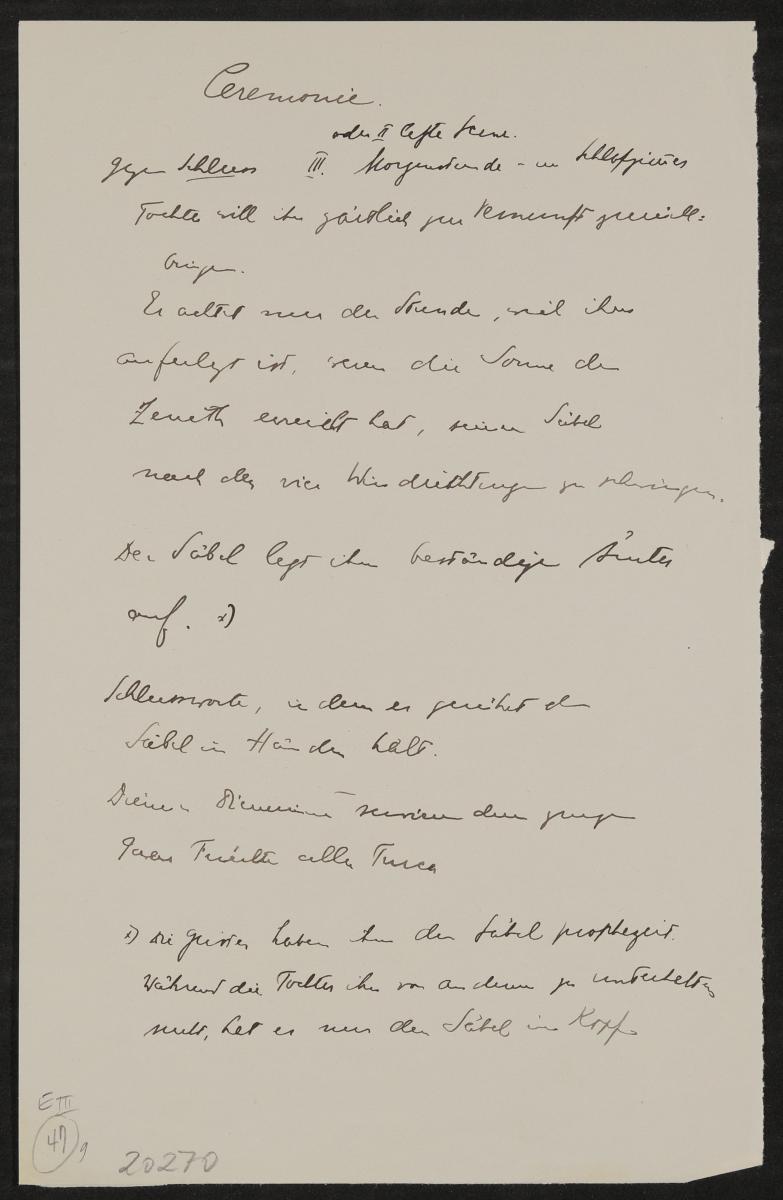 Ceremonie.
oder II letzte Scene.
gegen Schluss III. Morgenstunde - im Schlafzimmer
Tochter will ihn zärtlich zur Vernunft zurück=
bringen.
Er achtet nur der Stunde, weil ihm
auferlegt ist, wenn die Sonne den
Zenith erreicht hat, seinen Säbel
nach den vier Windrichtungen zu schwingen.
Der Säbel legt ihm beständige Ämter
auf. x)
Schlussworte, in dem er gerührt den
Säbel in Händen hält.
Diener servieren dem jungen
Paar Früchte alla Turca
x) Die Geister haben ihm den Säbel prophezeit.
Während die Tochter ihn von anderem zu unterhalten
sucht, hat er nur den Säbel im Kopf
E III
47 9
20270